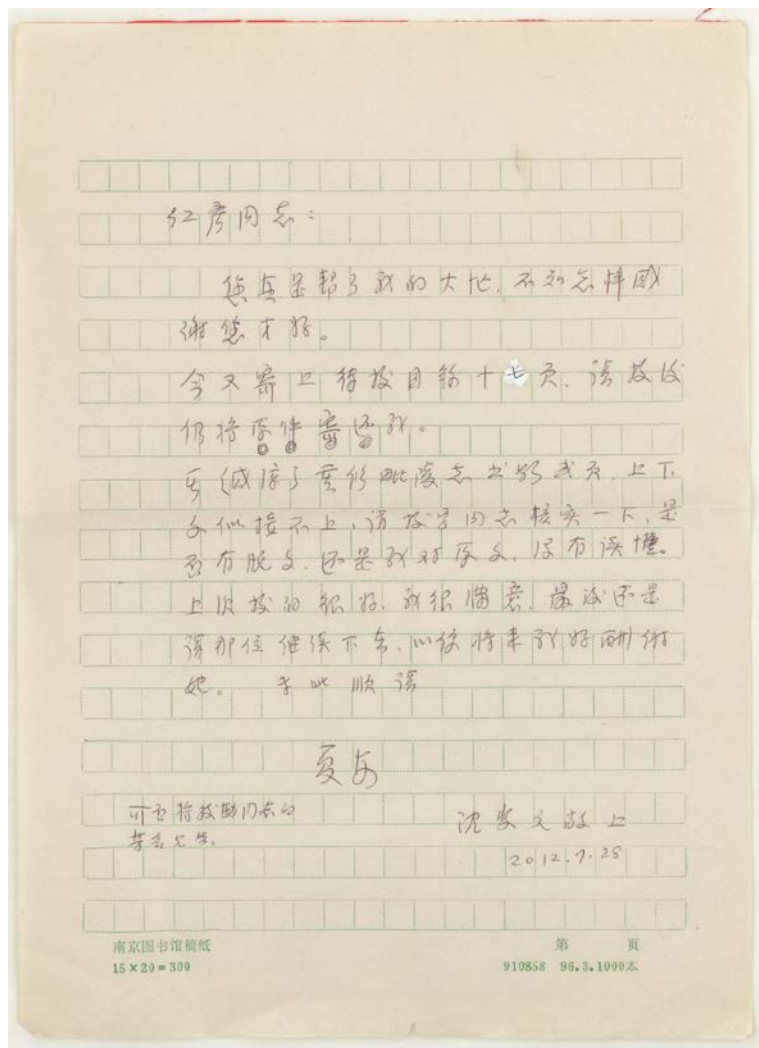 红彦同志：
您真是帮了我的大忙，不知怎样感
谢您才好。
今又寄上待校目录十七页，请校后
仍将原件寄还我。
重修毗陵志 上下
文似接不上，请校字同志核实一下，是
否有脱文，还是我对原文，没有读懂。
上次校的很好，我很满意，最后还是
请那位继续下去，以后将来我好酬谢
她。 专此 顺请
夏安
可否将校勘同志的
芳名见告。
沈燮元敬上
2012.7.28
南京图书馆稿纸
15×20=300
第 页
910858 96.3.1000本